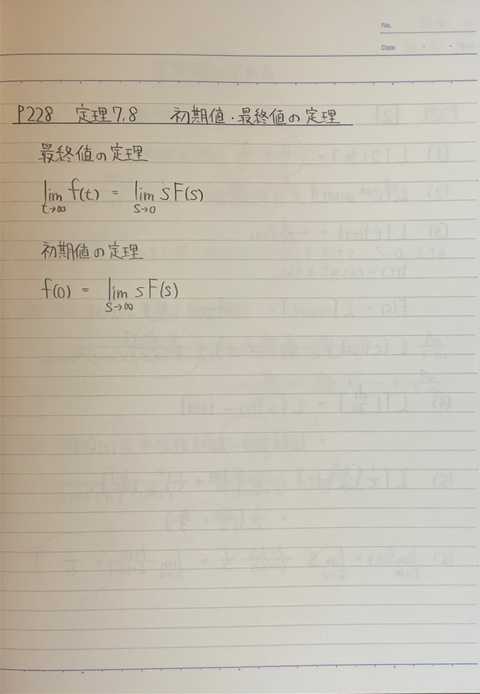 No.
Date
P228 定理7.8 初期値・最終値の定理
最終値の定理
lim f(t) = lim sF(s)
t→∞ s→0
初期値の定理
f(0) = lim sF(s)
s→∞